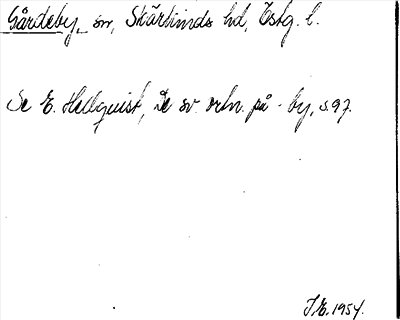 Gårdeby, sn, Skärkinds hd, Östg. l.
Se E. Hellquist, De sv. ortn. på -by, s 97.
J.E. 1954.